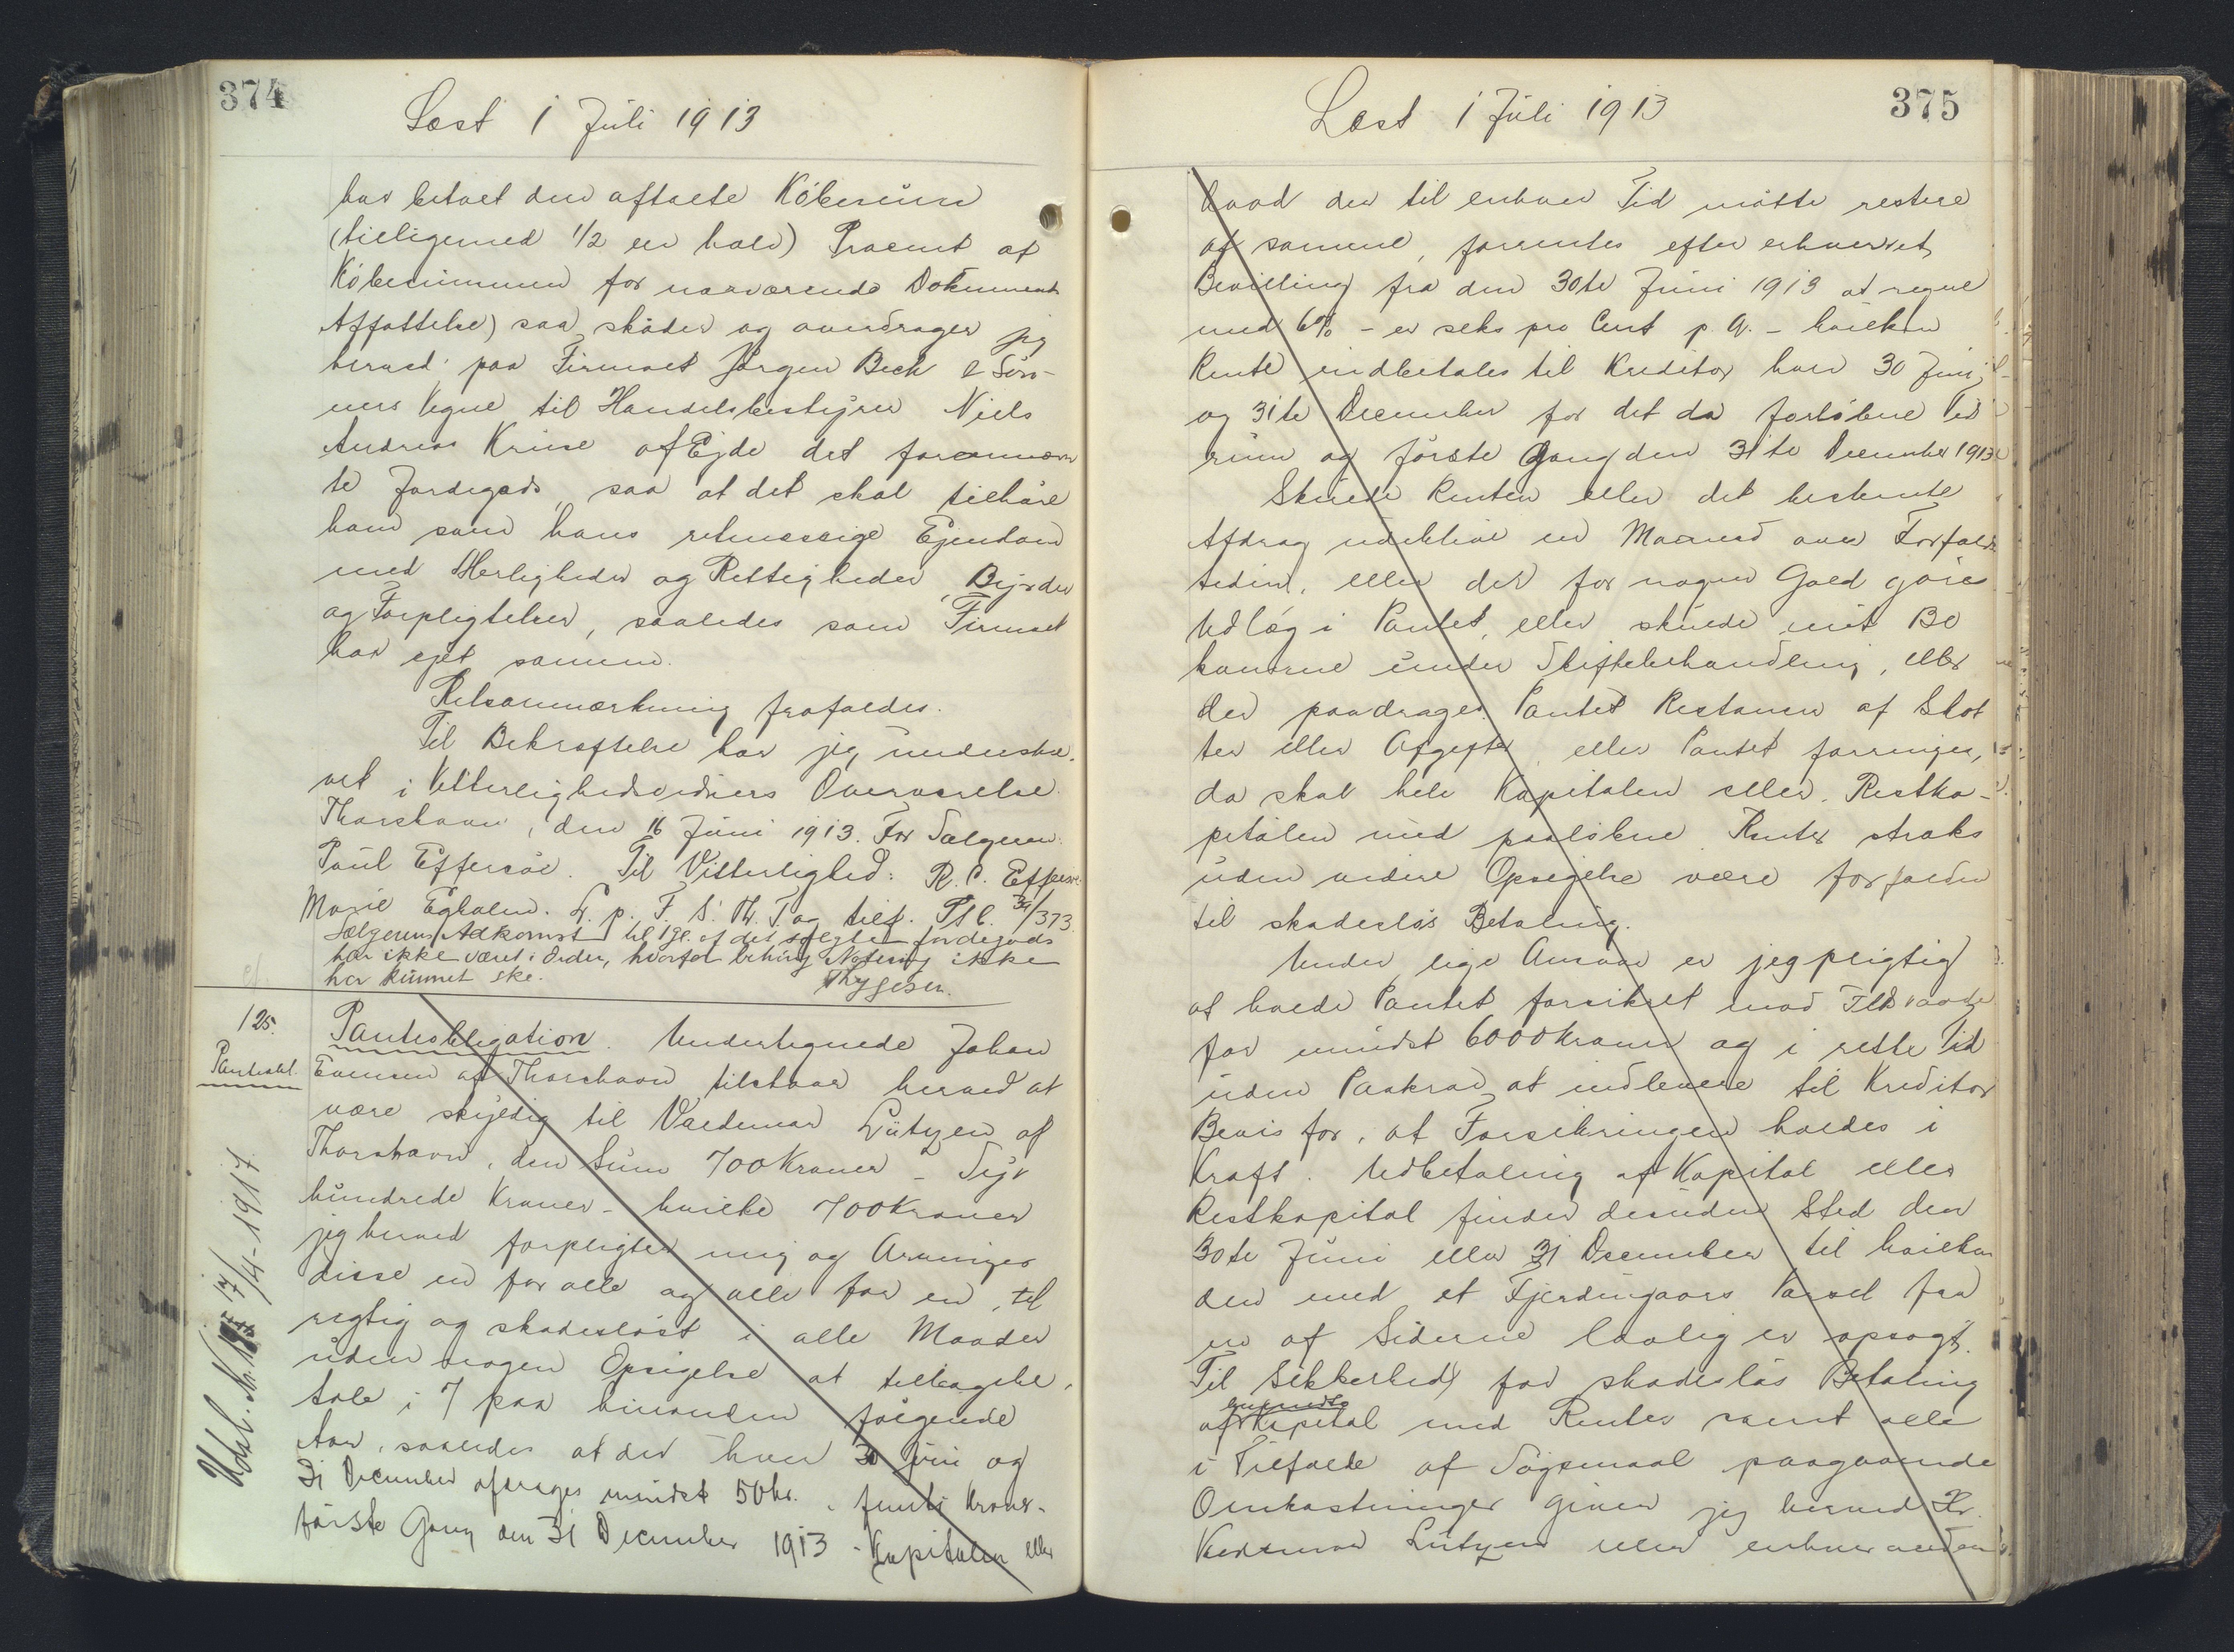 374
Læst 1 Juli 1913
har betalt den aftalte Köbesum
(tilligemed 1/2 en halv) Procent af
Köbesummen for nærværende Dokuments
Affattelse) saa skøder og overdrager jeg
herved paa Firmaet Jörgen Beck & Søn-
ners Vegne til Handelsbestyrer Niels
Andreas Kruse af Ejde det forannævn
te Jordegods, saa at det skal tilhøre
ham som hans retmæssige Ejendom
med Herligheder og Rettigheder, Byrder
og Forpligtelser, saaledes som Firmaet
har ejet samme.
Retsanmærkning frafaldes.
Til Bekræftelse har jeg underskre-
vet i Vitterlighedsvidners Overværelse.
Thorshavn, den 16 Juni 1913. For Sælgeren:
Poul Effersøe. Til Vitterlighed: R. C. Effersøe
Marie Egholm. L. p. F. S. Th. T. og tilf. Ptb. 31/373
Sælgerens Adkomst til 1 gl. af det solgte Jordegods
har ikke været i Orden, hvorfor behörig Notering ikke
har kunnet ske. Thygesen.
125.
Pantobl.
Pantobligation. Undertegnede Johan
Evensen af Thorshavn tilstaar herved at
være skyldig til Valdemar Lützen af
Thorshavn, den Sum 700 Kroner - Syv
hundrede Kroner - hvilke 700 Kroner
jeg herved forpligter mig og Arvinger
disse en for alle og alle for en, til
rigtig og skadesløst i alle Maader
uden nogen Opsigelse at tilbagebe-
tale i 7 paa hinanden følgende
Aar, saaledes at der hver 30 Juni og
31 December afdrages mindst 50 Kr. - femti Kroner -
første Gang den 31 December 1913 - Kapitalen eller
Udsl. 17/4-1917
375
Læst 1 Juli 1913
hvad der til enhver Tid måtte restere
af samme, forrentes efter erhvervet
Bevilling fra den 30te Juni 1913 at regne
med 6% - er seks pro Cent p. a. - hvilken
Rente indbetales til Kreditor hver 30 Juni
og 31te December for det da forløbne Tids
rum og første Gang den 31te December 1913
Skulde Renten eller det bestemte
Afdrag udeblive en Maaned over Forfalds
tiden, eller der for nogen Gæld gøres
Udlæg i Pantet, eller skulde mit Bo
komme under Skiftebehandling, eller
der paadrages Pantet Restancer af Skat
ter eller Afgifter, eller Pantet forringes,
da skal hele Kapitalen eller Restka-
pitalen med paaløbne Renter straks
uden videre Opsigelse være forfalden
til skadesløs Betaling.
Under lige Ansvar er jeg pligtig
at holde Pantet forsikret mod Ildsvaade
for mindst 6000 Kroner og i rette Tid
uden Paakrav at indlevere til Kreditor
Bevis for, at Forsikringen holdes i
Kraft. Udbetaling af Kapital eller
Restkapital finder desuden Sted den
30te Juni eller 31 December til hvilken
den med et Fjerdingaars Varsel fra
en af Siderne lovlig er opsagt.
Til Sikkerhed for skadesløs Betaling
anmeldte
af Kapital med Renter samt alle
i Tilfælde af Søgsmaal paagaaende
Omkostninger giver jeg herved Hr.
Valdemar Lützen eller enhver anden